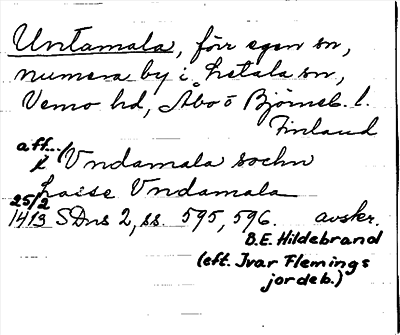 Untamala, förr egen sn,
numera by i Letala sn,
Vemo hd, Åbo o Björneb. l.
Finland
aff...
i Vndamala sochn
Lasse Vndamala
25/2
1413 SDns 2, ss. 595, 596. avskr.
B.E. Hildebrand
(eft. Ivar Flemings
jordeb.)